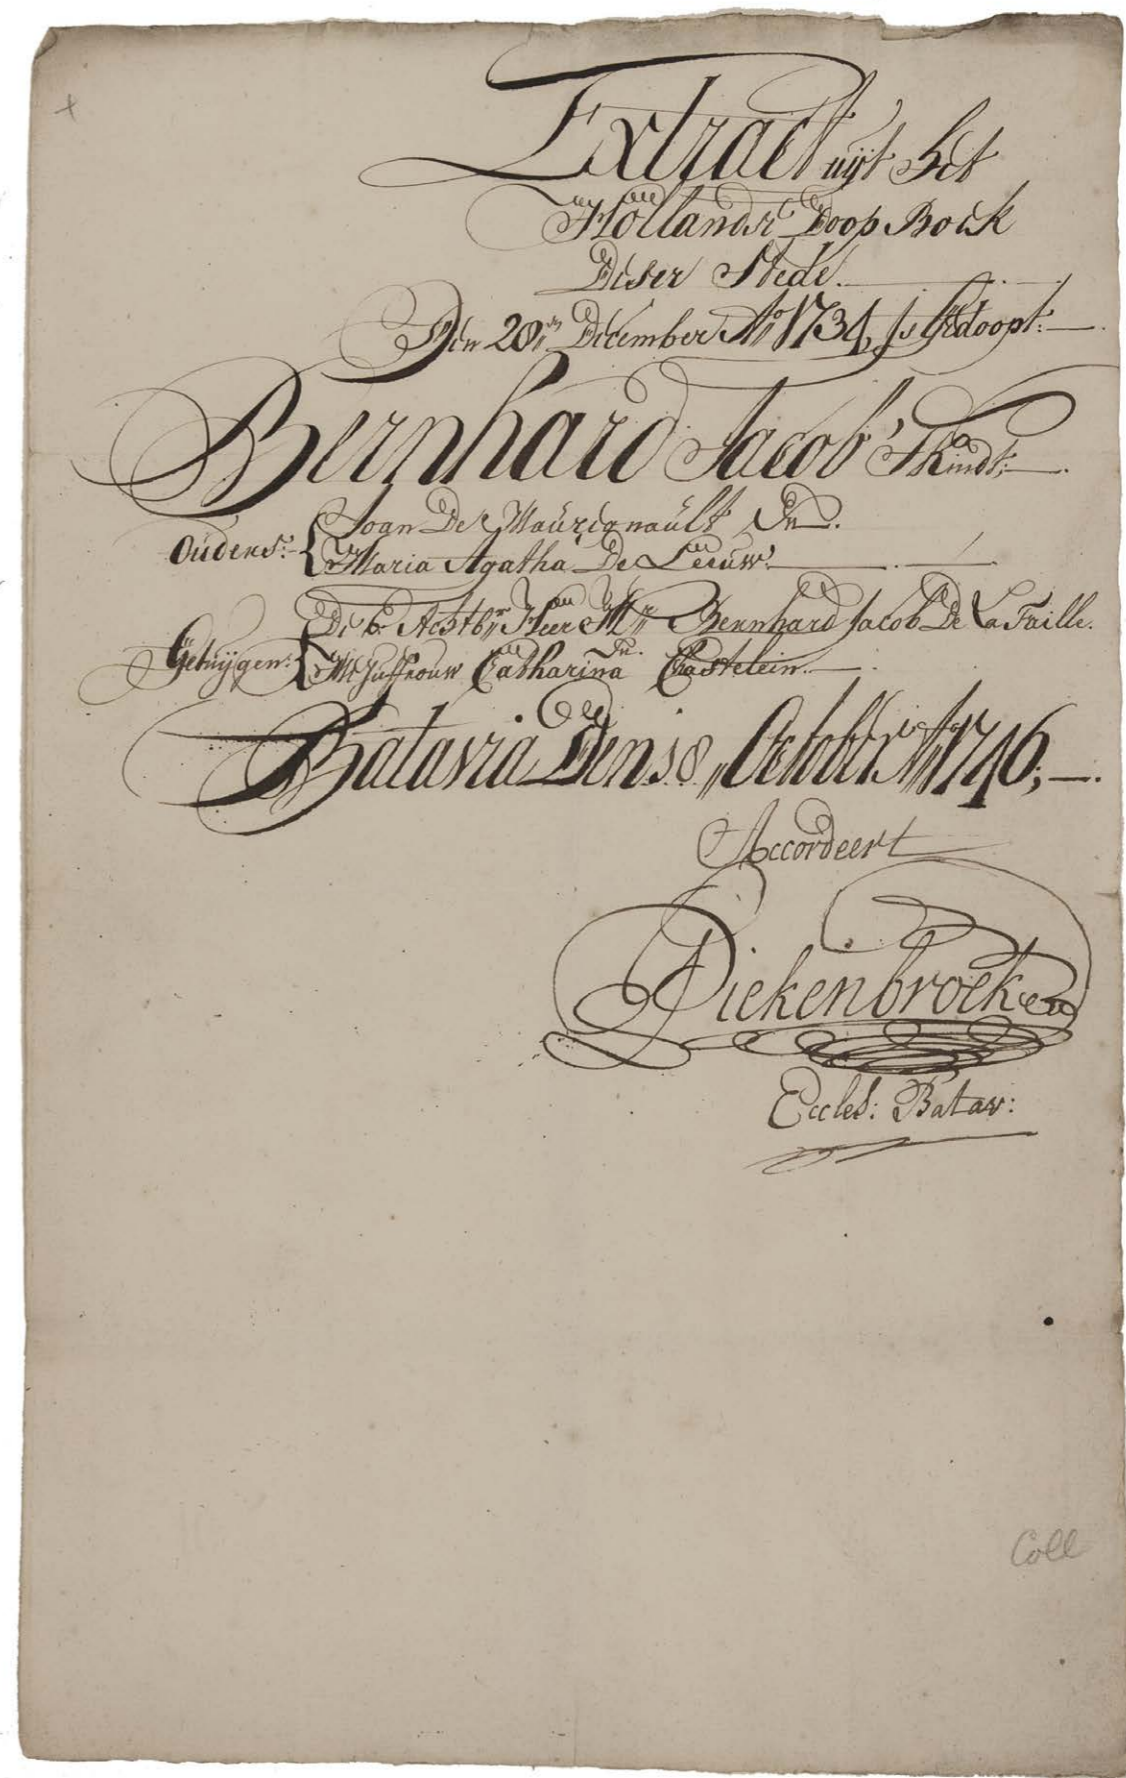 Extract uyt het
Hollands Doop Boek
Deser Stede.
Den 28:en December Ao 1734, Is Gedoopt:
Bernhard Jacob 'T Kindt;
Ouders: Joan De Mauregnault En.
Maria Agatha De Leeuw
Getuijgen: De E: Achtb:r Heer M:r Bernhard Jacob De La Faille.
En
Me Juffrouw Catharina Chastelein.
Batavia Den 18„ October Ao 1746;
Accordeert
Diekenbroek
Eccles: Batav:
Coll